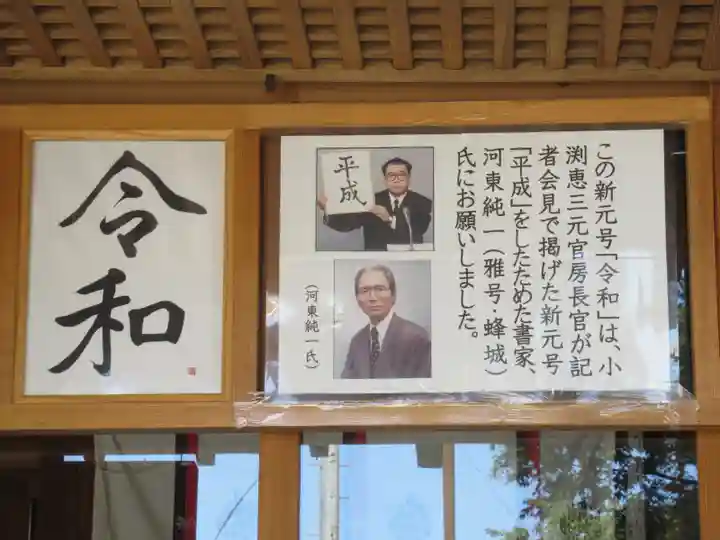 令和
この新元号「令和」は、小
渕恵三元官房長官が記
者会見で掲げた新元号
「平成」をしたためた書家、
河東純一(雅号·蜂城)
氏にお願いしました。
平成
(河東純一氏)